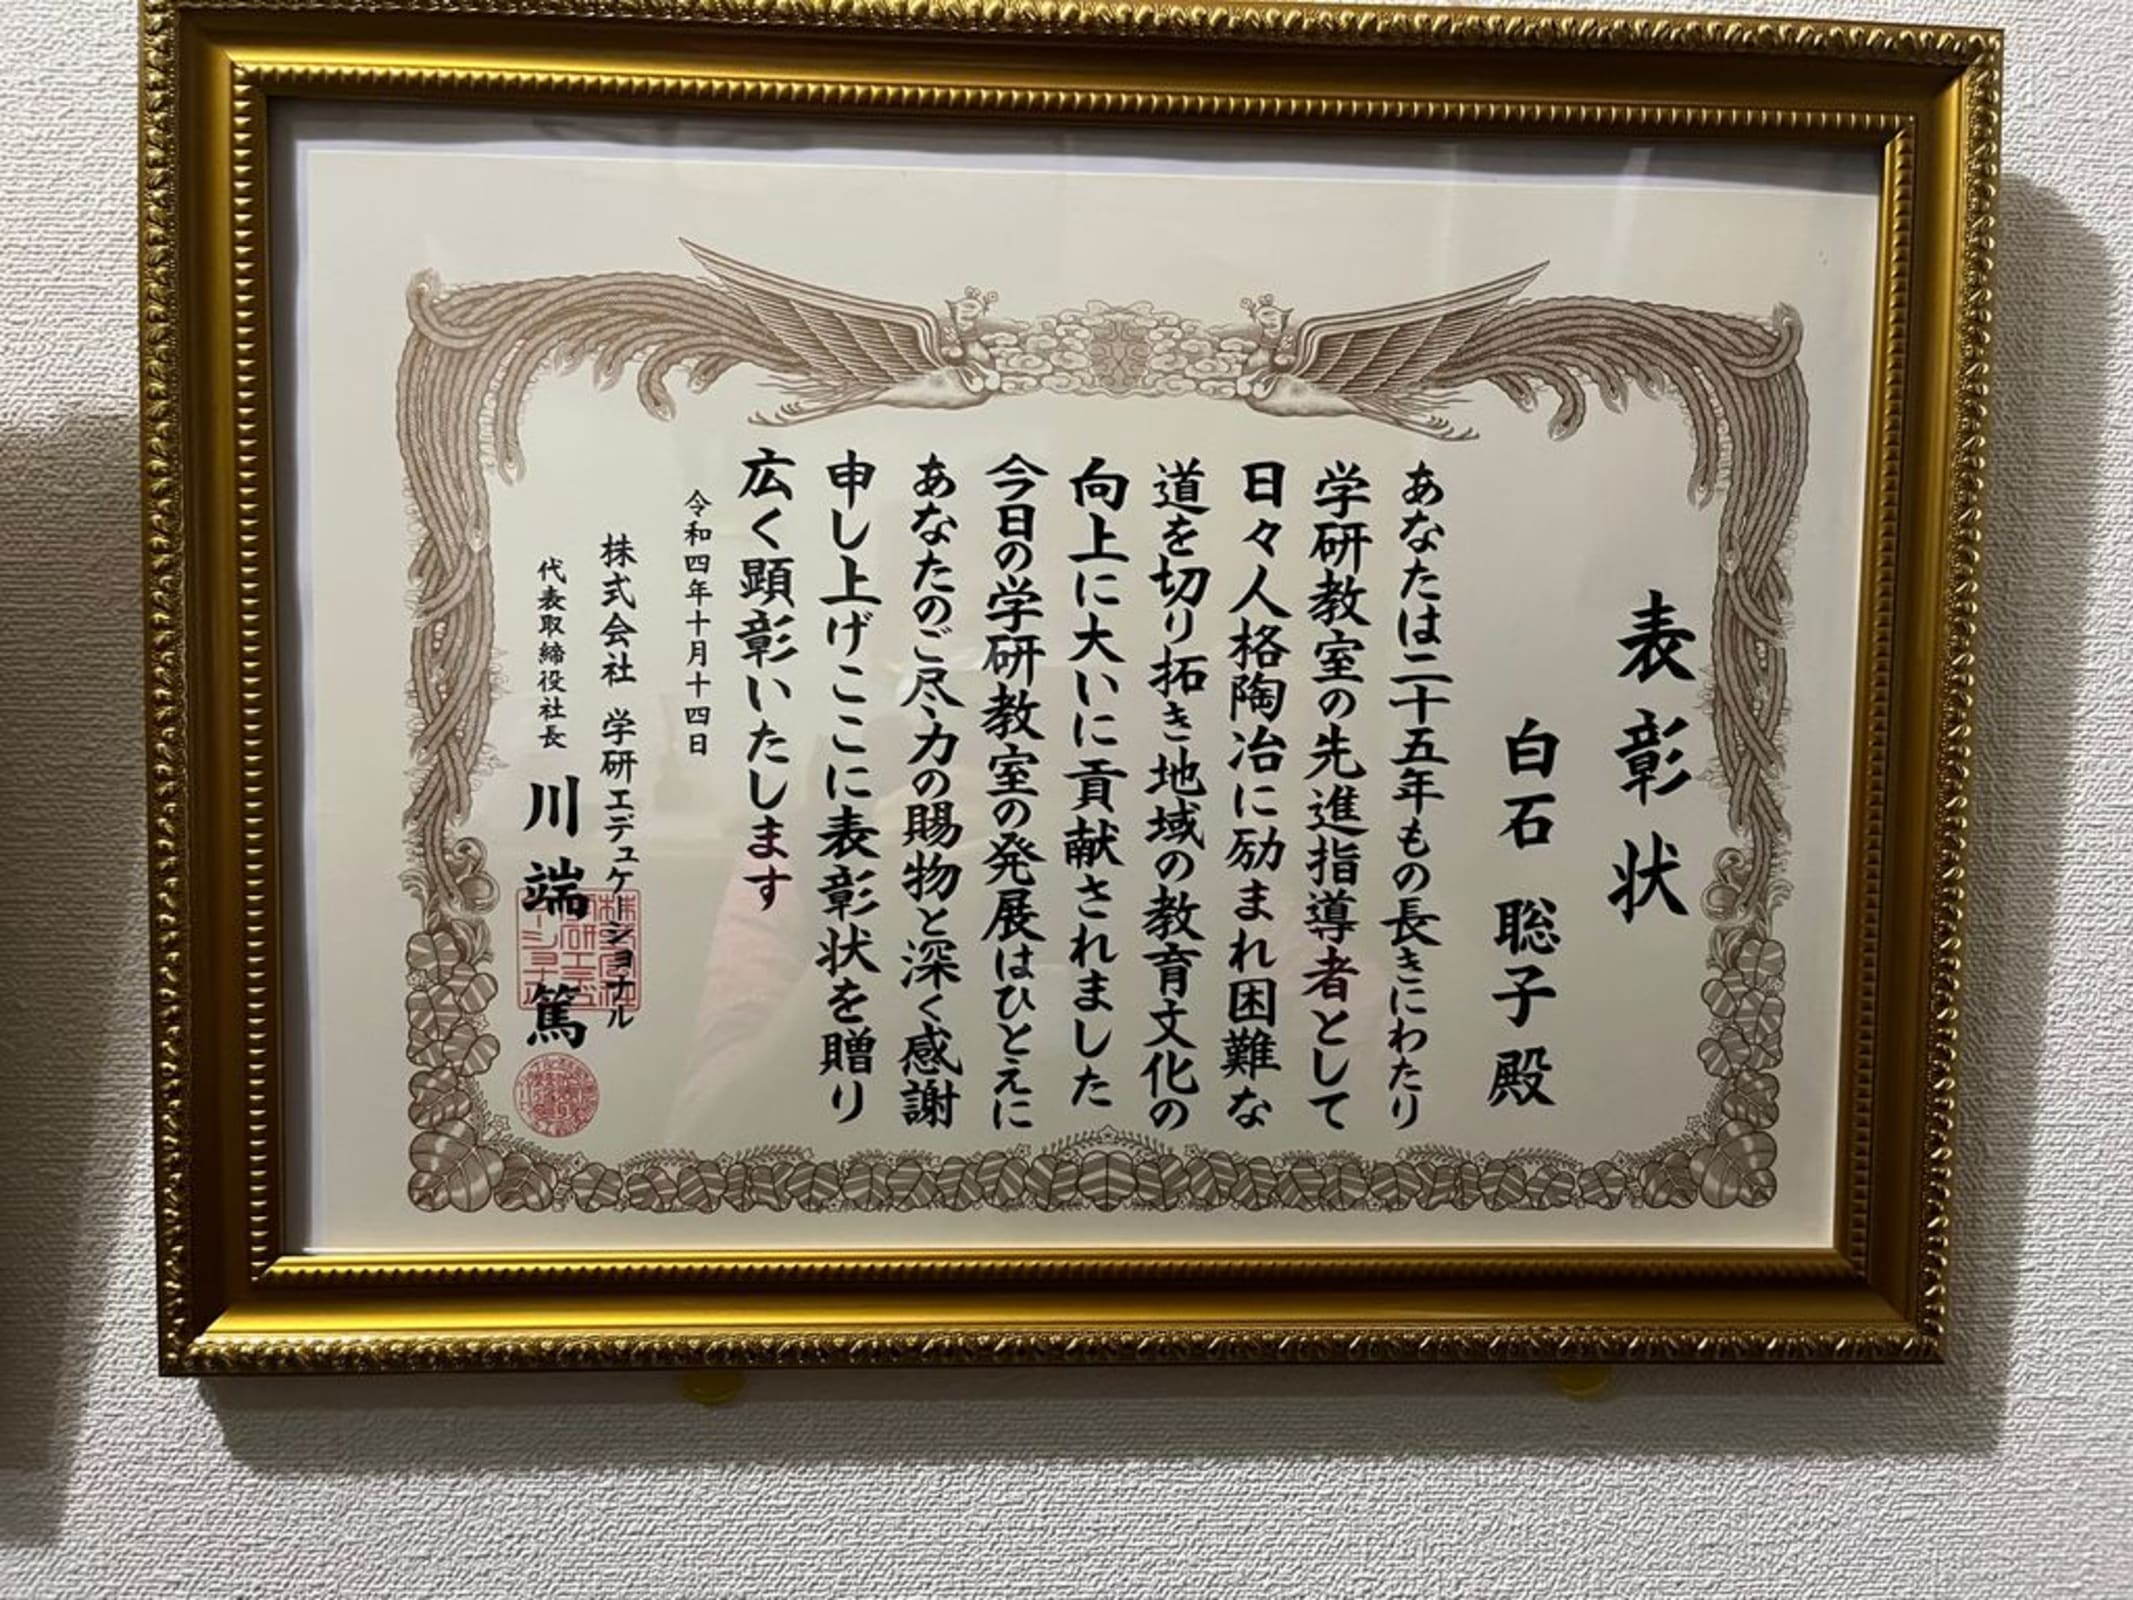 表彰状
白石 聡子 殿
あなたは二十五年もの長きにわたり
学研教室の先進指導者として
日々人格陶冶に励まれ困難な
道を切り拓き地域の教育文化の
向上に大いに貢献されました
今日の学研教室の発展はひとえに
あなたのご尽力の賜物と深く感謝
申し上げここに表彰状を贈り
広く顕彰いたします
令和四年十月十四日
株式会社 学研エデュケーショナル
代表取締役社長 川端 篤